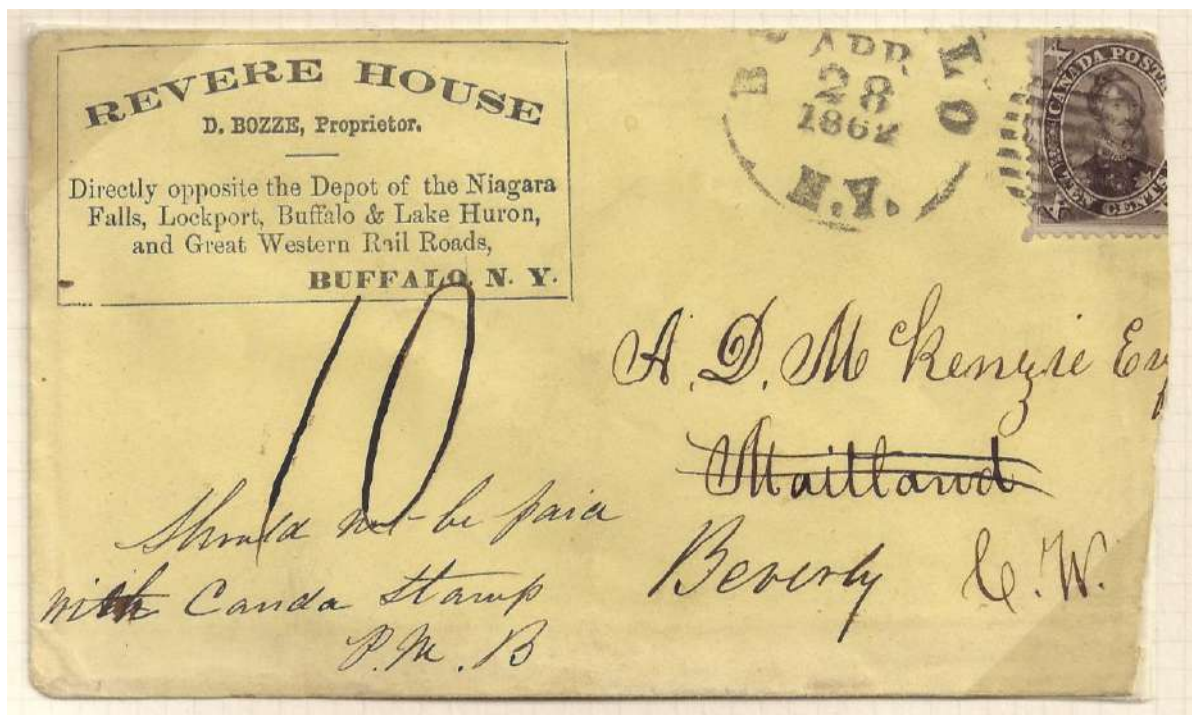 REVERE HOUSE
D. BOZZE, Proprietor.
Directly opposite the Depot of the Niagara
Falls, Lockport, Buffalo & Lake Huron,
and Great Western Rail Roads,
BUFFALO, N. Y.
APR
28
1862
N.Y.
CANADA POSTA
10
A. D. McKenzie Esq
Maitland
Beverly C. W.
Should not be paid
with Canda Stamp
P. M. B